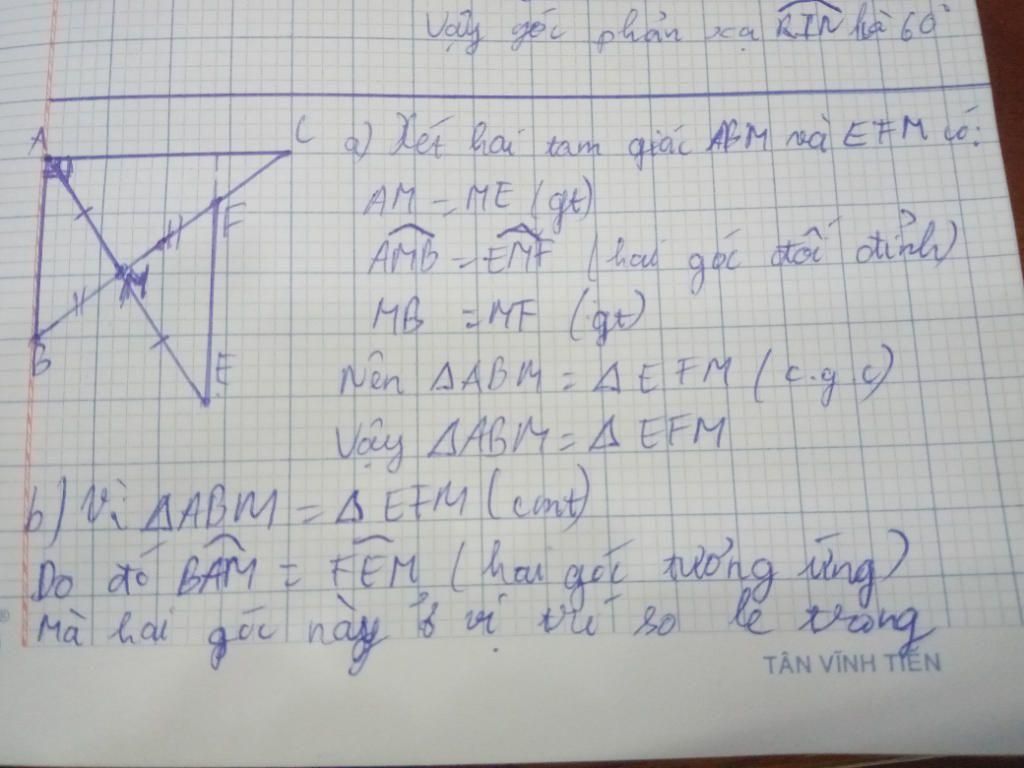 Vậy góc phản xạ RIN là 60°
A
C
F
M
B
E
a) Xét hai tam giác ABM và EFM có:
AM = ME (gt)
AMB = EMF (hai góc đối đỉnh)
MB = MF (gt)
Nên ΔABM = ΔEFM (c.g.c)
Vậy ΔABM = ΔEFM
b) Vì ΔABM = ΔEFM (cmt)
Do đó BAM = FEM (hai góc tương ứng)
Mà hai góc này ở vị trí so le trong
TÂN VĨNH TIẾN